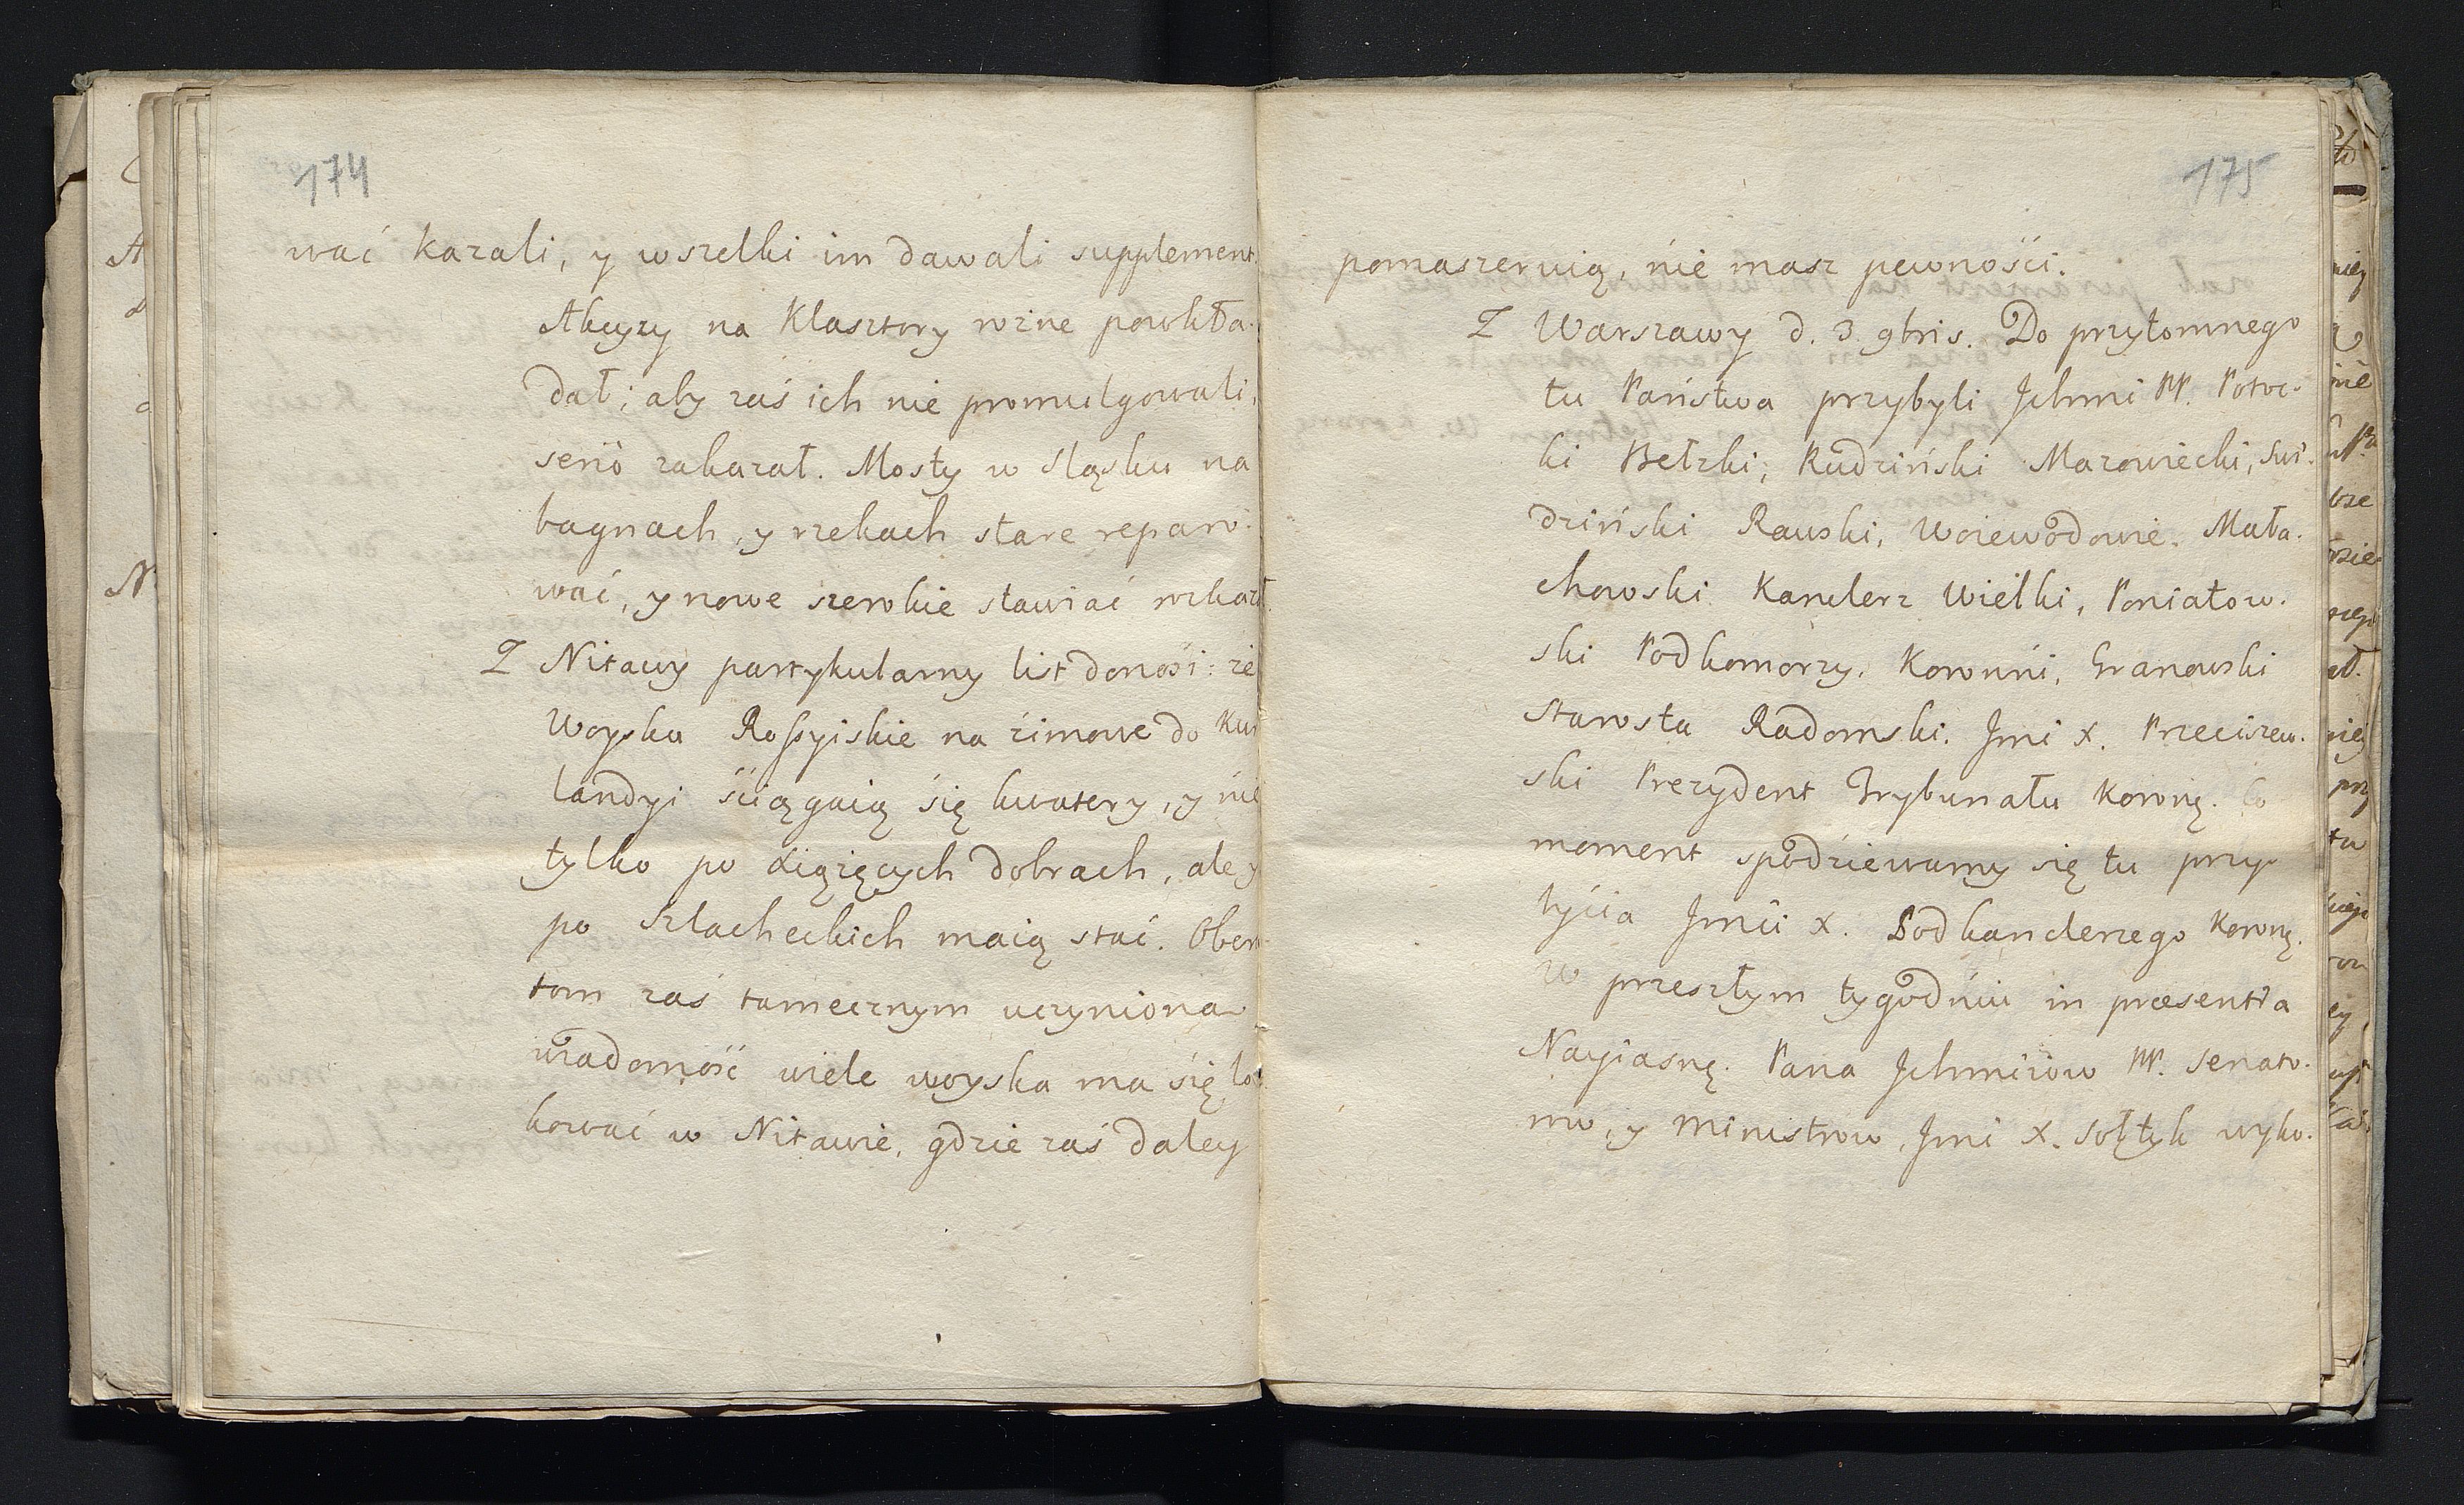 174
wać kazali, y wszelki im dawali supplement.
Akcyzy na Klasztory rożne powkła.
dał; aby zaś ich nie promulgowali,
serio zakazał. Mosty w Sląsku na
bagnach, y rzekach stare reparo.
wać, y nowe szerokie stawiać rozkazał.
Z Mitawy partykularny list donośi: że
Woyska Rossyiskie na źimowe do Kur
landyi śćiągaią się kwatery, y nie
tylko po Xiążęcych Dobrach, ale y
po Szlacheckich maią stać. Obera
tom zaś tamecznym uczyniona
wiadomość wiele woyska ma się lo
kować w Mitawie, gdzie zaś daley
175
pomaszeruią, nie masz pewnośći.
Z Warszawy d. 3. 9bris. Do przytomnego
tu Państwa przybyli Jchmć PP. Potoc.
ki Bełzki, Rudziński Mazowiecki, Swi.
dziński Rawski, Woiewodowie. Mała.
chowski Kanclerz Wielki, Poniatow.
ski Podkomorzy Koronni, Granowski
Starosta Radomski. Jmć X. Przeciszew.
ski Prezydent Trybunału Koronę. Co
moment spodźiewamy się tu przy
byćia Jmći X. Podkanclerzego Koronę.
W przeszłym tygodniu in præsentia
Nayiasnę. Pana Jchmćiow PP. Senato.
row, y Ministrow, Jmć X. Sołtyk wyko.